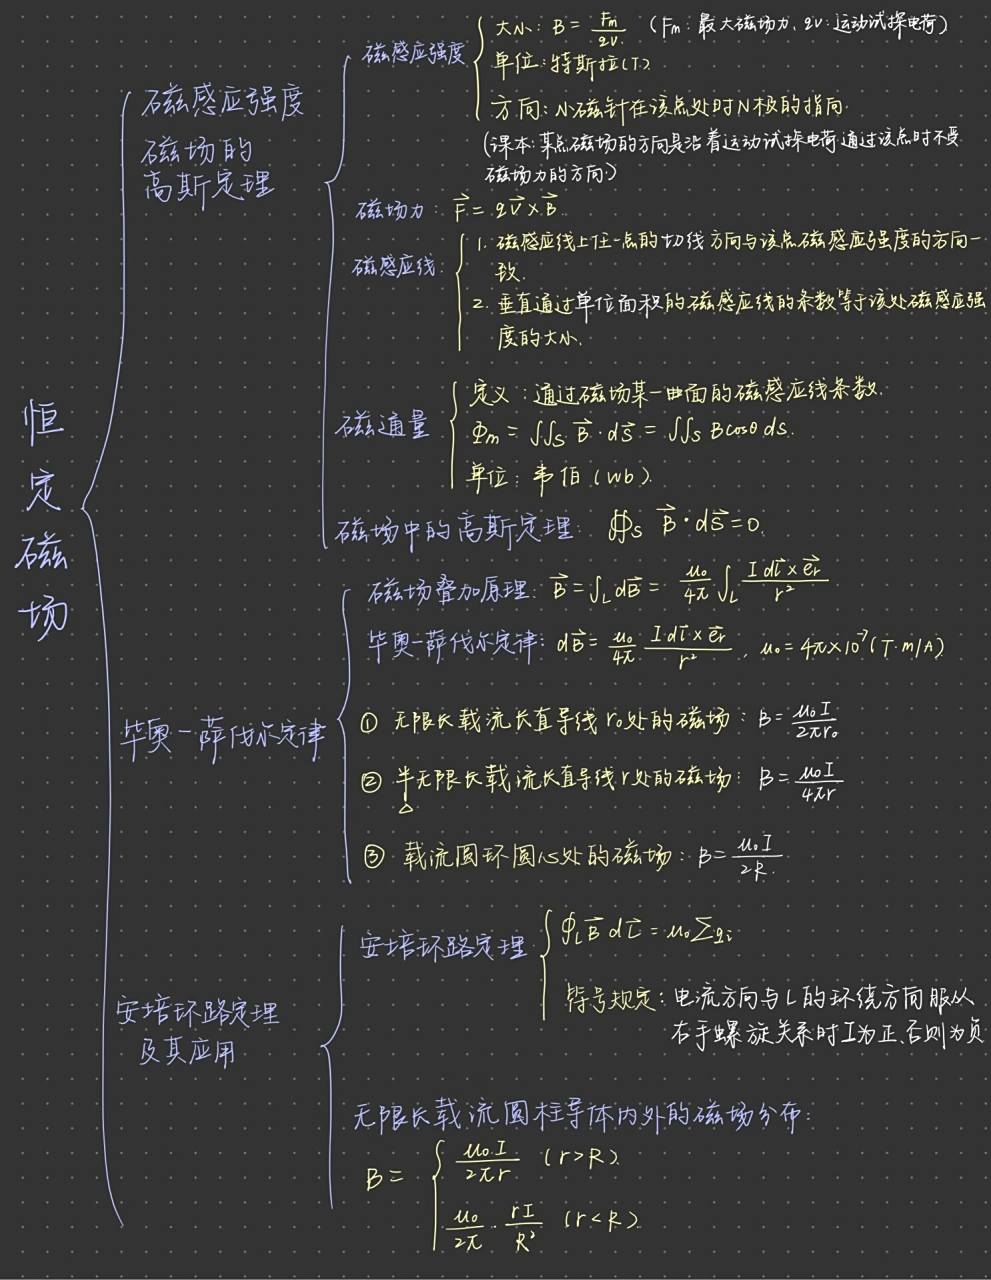 恒定磁场
磁感应强度
磁场的
高斯定理
磁感应强度
大小: B = Fm/qv (Fm: 最大磁场力, qv: 运动试探电荷)
单位: 特斯拉(T)
方向: 小磁针在该点处时N极的指向
(课本: 某点磁场的方向是沿着运动试探电荷通过该点时不受
磁场力的方向)
磁场力: F⃗ = qv⃗ × B⃗
磁感应线:
1. 磁感应线上任一点的切线方向与该点磁感应强度的方向一
致.
2. 垂直通过单位面积的磁感应线的条数等于该处磁感应强
度的大小.
磁通量
定义: 通过磁场某一曲面的磁感应线条数.
Φm = ∬S B⃗·dS⃗ = ∬S Bcosθ ds.
单位: 韦伯 (wb)
磁场中的高斯定理: ∯S B⃗·dS⃗ = 0.
毕奥一萨伐尔定律
磁场叠加原理: B⃗ = ∫L dB⃗ = μ₀/4π ∫L Idl⃗ × e⃗r/r²
毕奥一萨伐尔定律: dB⃗ = μ₀/4π Idl⃗ × e⃗r/r², μ₀ = 4π×10⁻⁷(T·m/A)
① 无限长载流长直导线r₀处的磁场: B = μ₀I/2πr₀
② 半无限长载流长直导线r处的磁场: B = μ₀I/4πr
③ 载流圆环圆心处的磁场: B = μ₀I/2R.
安培环路定理
及其应用
安培环路定理
∮L B⃗ dl⃗ = μ₀ Σqi
符号规定: 电流方向与L的环绕方向服从
右手螺旋关系时I为正,否则为负
无限长载流圆柱导体内外的磁场分布:
B =
μ₀I/2πr (r>R)
μ₀/2π · rI/R² (r<R)